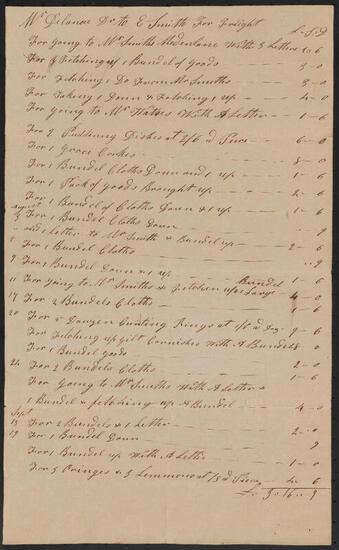 Mr Delance Dr to E Smith For Freight
£ - S - D
For going to Mr Smiths With 3 Letters 2 - 6
For Fetching up 1 Bundel of Goods - 3 - 0
For Fetching 1 Do From Mr Smiths - 3 - 0
For Takeing 1 Down & Fetching 1 up - 4 - 0
For going to Mr With A Letter - 1 - 6
For 2 Pudding Dishes at 2/6 d Peace - 6 - 0
For 1 - 8 - 0
For 1 Bundel Cloths Down and 1 up - 1 - 6
For 1 Pack of Goods Brought up - 2 - 0
For 1 Bundel of Cloths Down & 1 up - 1 - 6
August
For 1 Bundel Cloths down - 9
and 1 Letter to Mr Smith & Bundel up - 2 - 6
8 For 1 Bundel Cloths - 9
9 For 1 Bundel Down & 1 up - 1 - 6
11 For going to Mr Smiths & fetchen up 1 Large Bundel 4 - 0
17 For 2 Bundels Cloths - 1 - 6
20 For Dawzen Curting Rings at 1/6 d 9 - 6
For Fetching up Gilt Cornishes With A Bundel 8 - 0
For 1 Bundel Goods - 2 - 0
24 For 2 Bundels Cloths - 1 - 6
For going to Mr Smiths With A Letter &
1 Bundel & fetching up A Bundel - 4 - 0
Sept
18 For 2 Bundels & 1 Letter - 2 - 0
19 For 1 Bundel Down - 9
For 1 Bundel up With A Letter - 1 - 0
For 3 Oringes & 3 Lemmons at 18 d Peace 4 - 6
£ 3 " 16 " 9